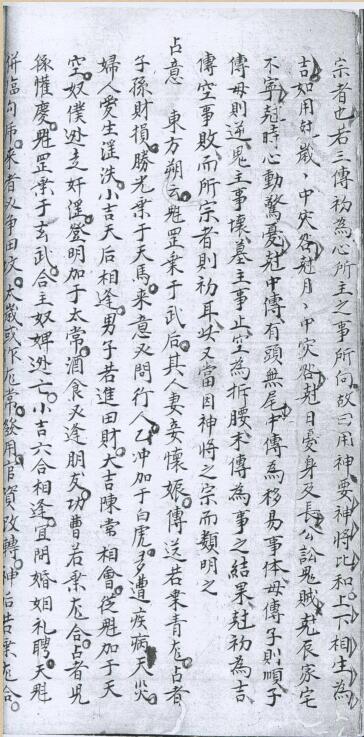 宗者也若三傳初為心所主之事所向故曰用神要神將比和上下相生為
吉如用尅歲、中灾呂尅月、中灾咎尅日憂身及長公訟鬼賊尅辰家宅
不寧尅時心動驚憂尅中傳有頭無尾中傳為移易事体母傳子則順子
傳母則逆鬼主事壞墓主事止空為折腰末傳為事之結果尅初為吉
傳空事敗而所宗者則初耳此又當因神將之宗而類明之
占意 東方朔云魁罡乗于武后其人妻妾懷娠傳送若乗青龙占者
子孫財損勝光乗于天馬来意又問行人乙冲加于白虎多遭疾病天灾
婦人愛生淫泆小吉天后相逢男子若進田財大吉陳常相會從魁加于天
空奴僕逃走奸淫登明加于太常酒食又逢朋友功曹若乗龙合占者児
孫懽慶魁罡乗于玄武合主奴婢逃亡小吉六合相逢宜問婚姻礼聘天魁
併臨勾帋来者必争田文太歲或作龙常發用官資改轉神后若乗龙合